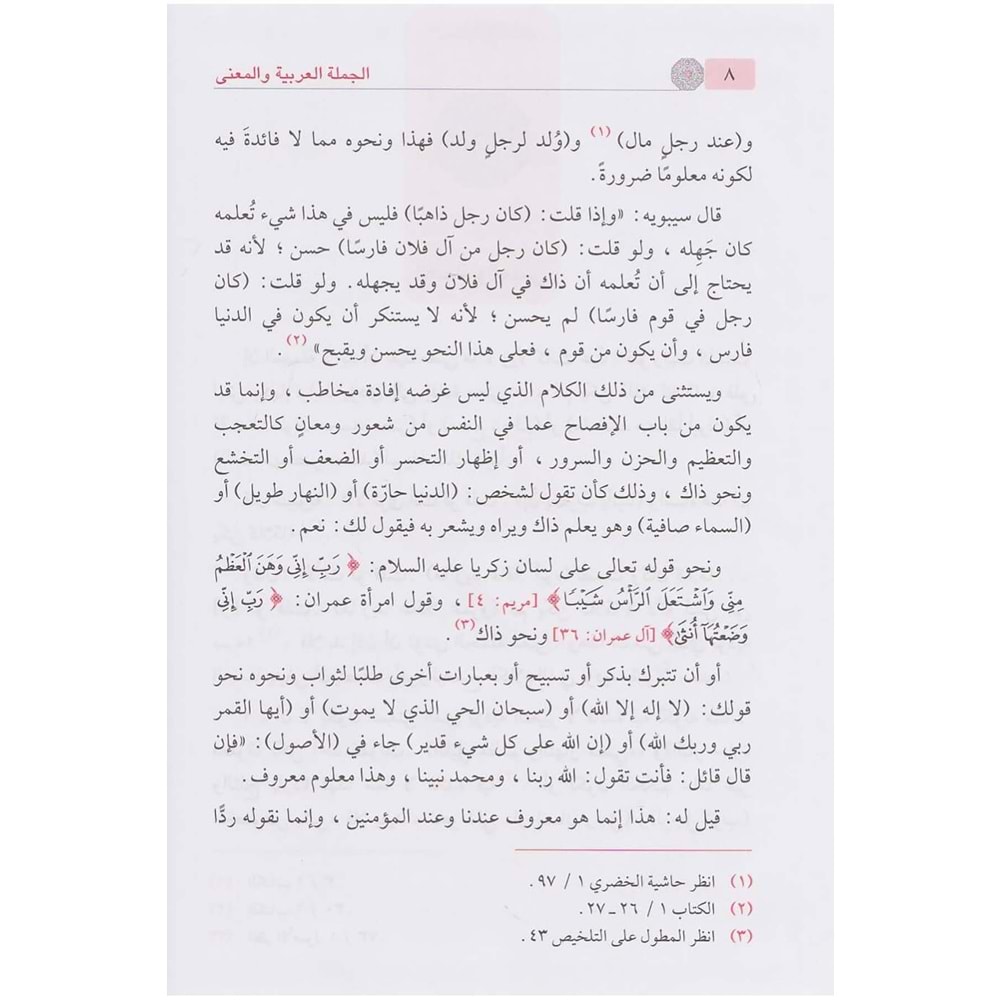 ٨
الجملة العربية والمعنى
و(عند رجلٍ مال) (١) و(وُلد لرجلٍ ولد) فهذا ونحوه مما لا فائدةَ فيه
لكونه معلومًا ضرورةً.
قال سيبويه: «وإذا قلت: (كان رجل ذاهبًا) فليس في هذا شيء تُعلمه
كان جَهِله ، ولو قلت: (كان رجل من آل فلان فارسًا) حسن ؛ لأنه قد
يحتاج إلى أن تُعلمه أن ذاك في آل فلان وقد يجهله. ولو قلت: (كان
رجل في قوم فارسًا) لم يحسن ؛ لأنه لا يستنكر أن يكون في الدنيا
فارس ، وأن يكون من قوم ، فعلى هذا النحو يحسن ويقبح» (٢) .
ويستثنى من ذلك الكلام الذي ليس غرضه إفادة مخاطب ، وإنما قد
يكون من باب الإفصاح عما في النفس من شعور ومعانٍ كالتعجب
والتعظيم والحزن والسرور ، أو إظهار التحسر أو الضعف أو التخشع
ونحو ذاك ، وذلك كأن تقول لشخص: (الدنيا حارّة) أو (النهار طويل) أو
(السماء صافية) وهو يعلم ذاك ويراه ويشعر به فيقول لك: نعم.
ونحو قوله تعالى على لسان زكريا عليه السلام: ﴿ رَبِّ إِنِّي وَهَنَ ٱلْعَظْمُ
مِنِّي وَٱشْتَعَلَ ٱلرَّأْسُ شَيْبًا ﴾ [مريم: ٤] ، وقول امرأة عمران: ﴿ رَبِّ إِنِّي
وَضَعْتُهَآ أُنثَىٰ ﴾ [آل عمران: ٣٦] ونحو ذاك (٣) .
أو أن تتبرك بذكر أو تسبيح أو بعبارات أخرى طلبًا لثواب ونحوه نحو
قولك: (لا إله إلا الله) أو (سبحان الحي الذي لا يموت) أو (أيها القمر
ربي وربك الله) أو (إن الله على كل شيء قدير) جاء في (الأصول): «فإن
قال قائل: فأنت تقول: الله ربنا ، ومحمد نبينا ، وهذا معلوم معروف.
قيل له: هذا إنما هو معروف عندنا وعند المؤمنين ، وإنما نقوله ردًّا
(١) انظر حاشية الخضري ١ / ٩٧ .
(٢) الكتاب ١ / ٢٦ ـ ٢٧ .
(٣) انظر المطول على التلخيص ٤٣ .